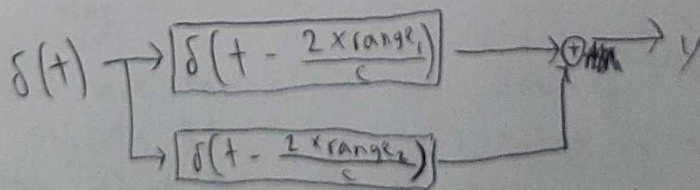 δ(t) δ(t - 2 x range₁ / c) ⊕ y
δ(t - 2 x range₂ / c)